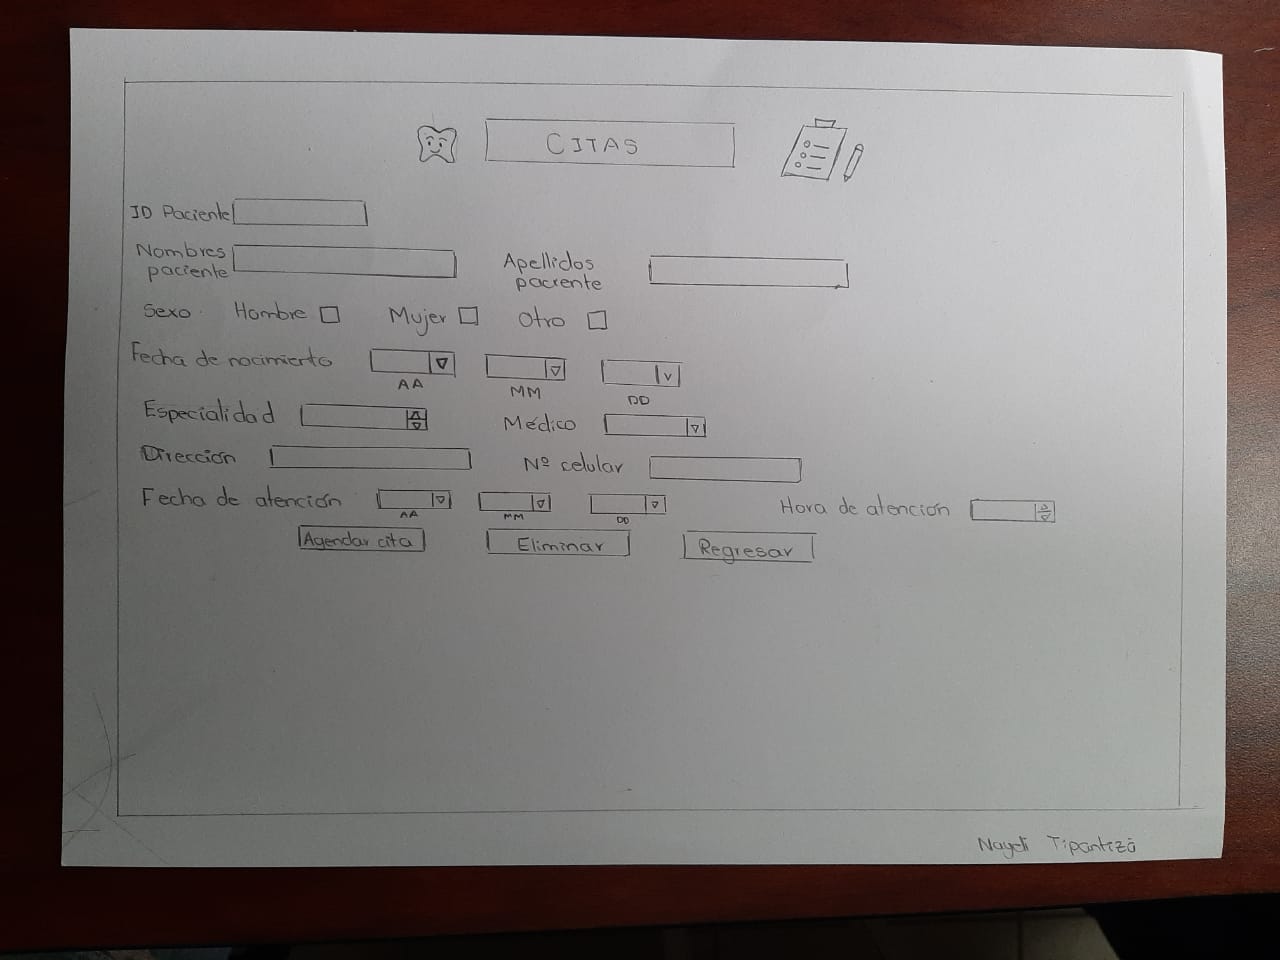 CITAS
ID Paciente
Nombres
paciente
Apellidos
paciente
Sexo Hombre Mujer Otro
Fecha de nacimiento
AA MM DD
Especialidad Médico
Dirección Nº celular
Fecha de atención Hora de atención
AA MM DD
Agendar cita Eliminar Regresar